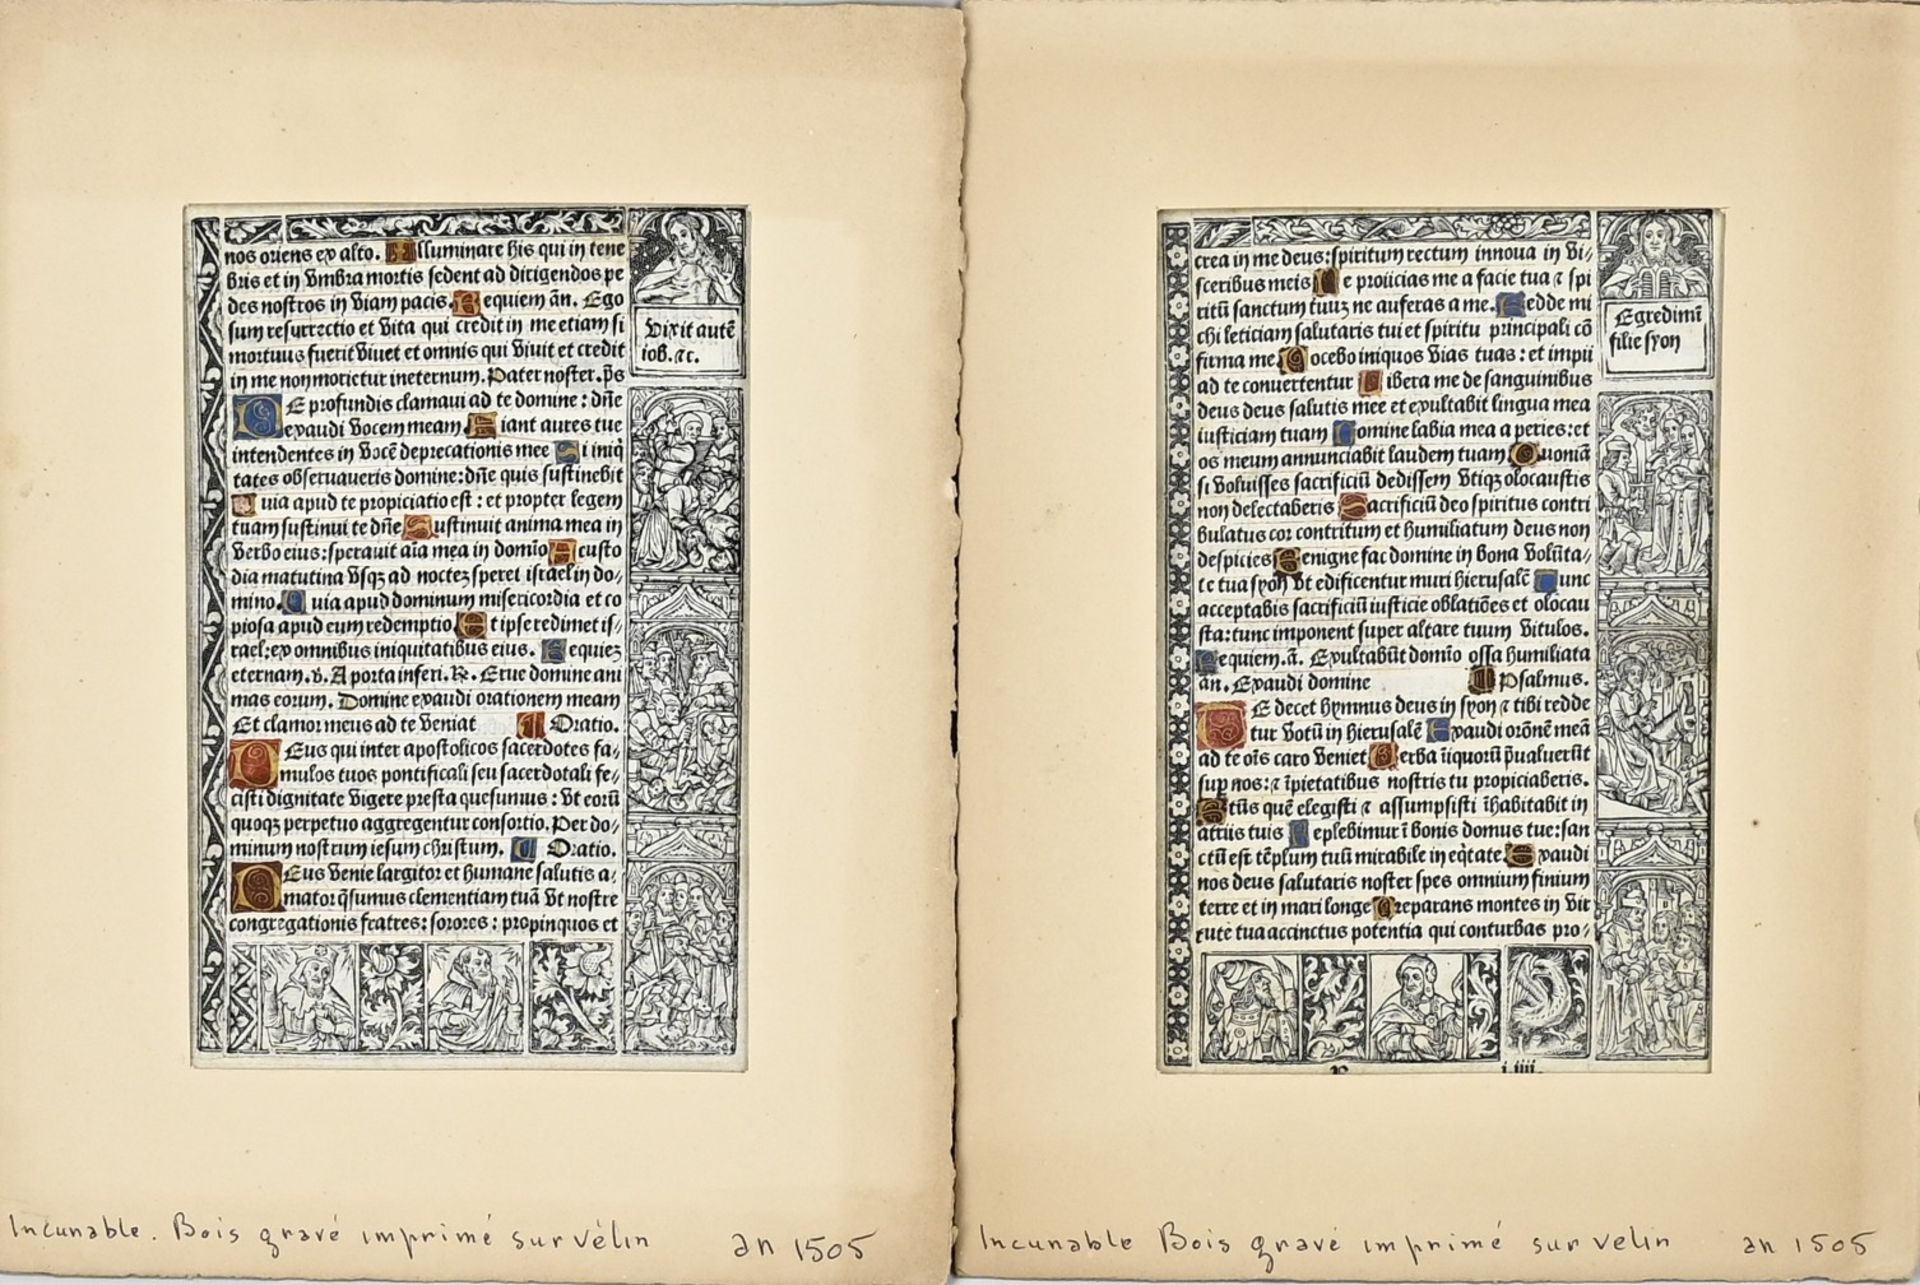 nos oriens ex alto. Illuminare his qui in tene
bris et in vmbra mortis sedent ad dirigendos pe
des nostros in viam pacis. Requiem ān. Ego
sum resurrectio et vita qui credit in me etiam si
mortuus fuerit viuet et omnis qui viuit et credit
in me non morietur ineternum. Pater noster. p̄s
DE profundis clamaui ad te domine: dn̄e
exaudi vocem meam Fiant aures tue
intendentes in vocē deprecationis mee Si iniq̇
tates obseruaueris domine: dn̄e quis sustinebit
Quia apud te propiciatio est: et propter legem
tuam sustinui te dn̄e Sustinuit anima mea in
verbo eius: sperauit aīa mea in domīo A custo
dia matutina vsqꝫ ad nocteꝫ speret israel in do/
mino. Quia apud dominum misericordia et co
piosa apud eum redemptio Et ipse redimet is/
rael: ex omnibus iniquitatibus eius. Requieꝫ
eternam. v. A porta inferi. ℟. Erue domine ani
mas eorum. Domine exaudi orationem meam
Et clamor meus ad te veniat ¶ Oratio.
DEus qui inter apostolicos sacerdotes fa/
mulos tuos pontificali seu sacerdotali fe/
cisti dignitate vigere presta quesumus: vt eorū
quoqꝫ perpetuo aggregentur consortio. Per do/
minum nostrum iesum christum. ¶ Oratio.
DEus venie largitor et humane salutis a/
mator q̄sumus clementiam tuā vt nostre
congregationis fratres: sorores: propinquos et
Vixit autē
iob. ⁊c.
Incunable. Bois gravé imprimé sur vélin an 1505
crea in me deus: spiritum rectum innoua in vi/
sceribus meis Ne proiicias me a facie tua ⁊ spi
ritū sanctum tuuꝫ ne auferas a me. Redde mi
chi leticiam salutaris tui et spiritu principali cō
firma me Docebo iniquos vias tuas: et impii
ad te conuertentur Libera me de sanguinibus
deus deus salutis mee et exultabit lingua mea
iusticiam tuam Domine labia mea aperies: et
os meum annunciabit laudem tuam Quoniā
si voluisses sacrificiū dedissem vtiqꝫ olocaustis
non delectaberis Sacrificiū deo spiritus contri
bulatus cor contritum et humiliatum deus non
despicies Benigne fac domine in bona volūta/
te tua syon vt edificentur muri hierusalē Tunc
acceptabis sacrificiū iusticie oblatiōes et olocau
sta: tunc imponent super altare tuum vitulos.
Requiem. ā. Exultabūt domīo ossa humiliata
an. Exaudi domine ¶ Psalmus.
TE decet hymnus deus in syon ⁊ tibi redde
tur votū in hierusalē Exaudi orōnē meā
ad te oīs caro veniet Verba īiquorū p̄ualuerūt
sup nos: ⁊ īpietatibus nostris tu propiciaberis.
Btūs quē elegisti ⁊ assumpsisti īhabitabit in
atriis tuis Replebimur ī bonis domus tue: san
ctū est tēplum tuū mirabile in eq̇tate Exaudi
nos deus salutaris noster spes omnium finium
terre et in mari longe Preparans montes in vir
tute tua accinctus potentia qui conturbas pro/
Egredimī
filie syon
i.iiii.
Incunable Bois gravé imprimé sur velin an 1505